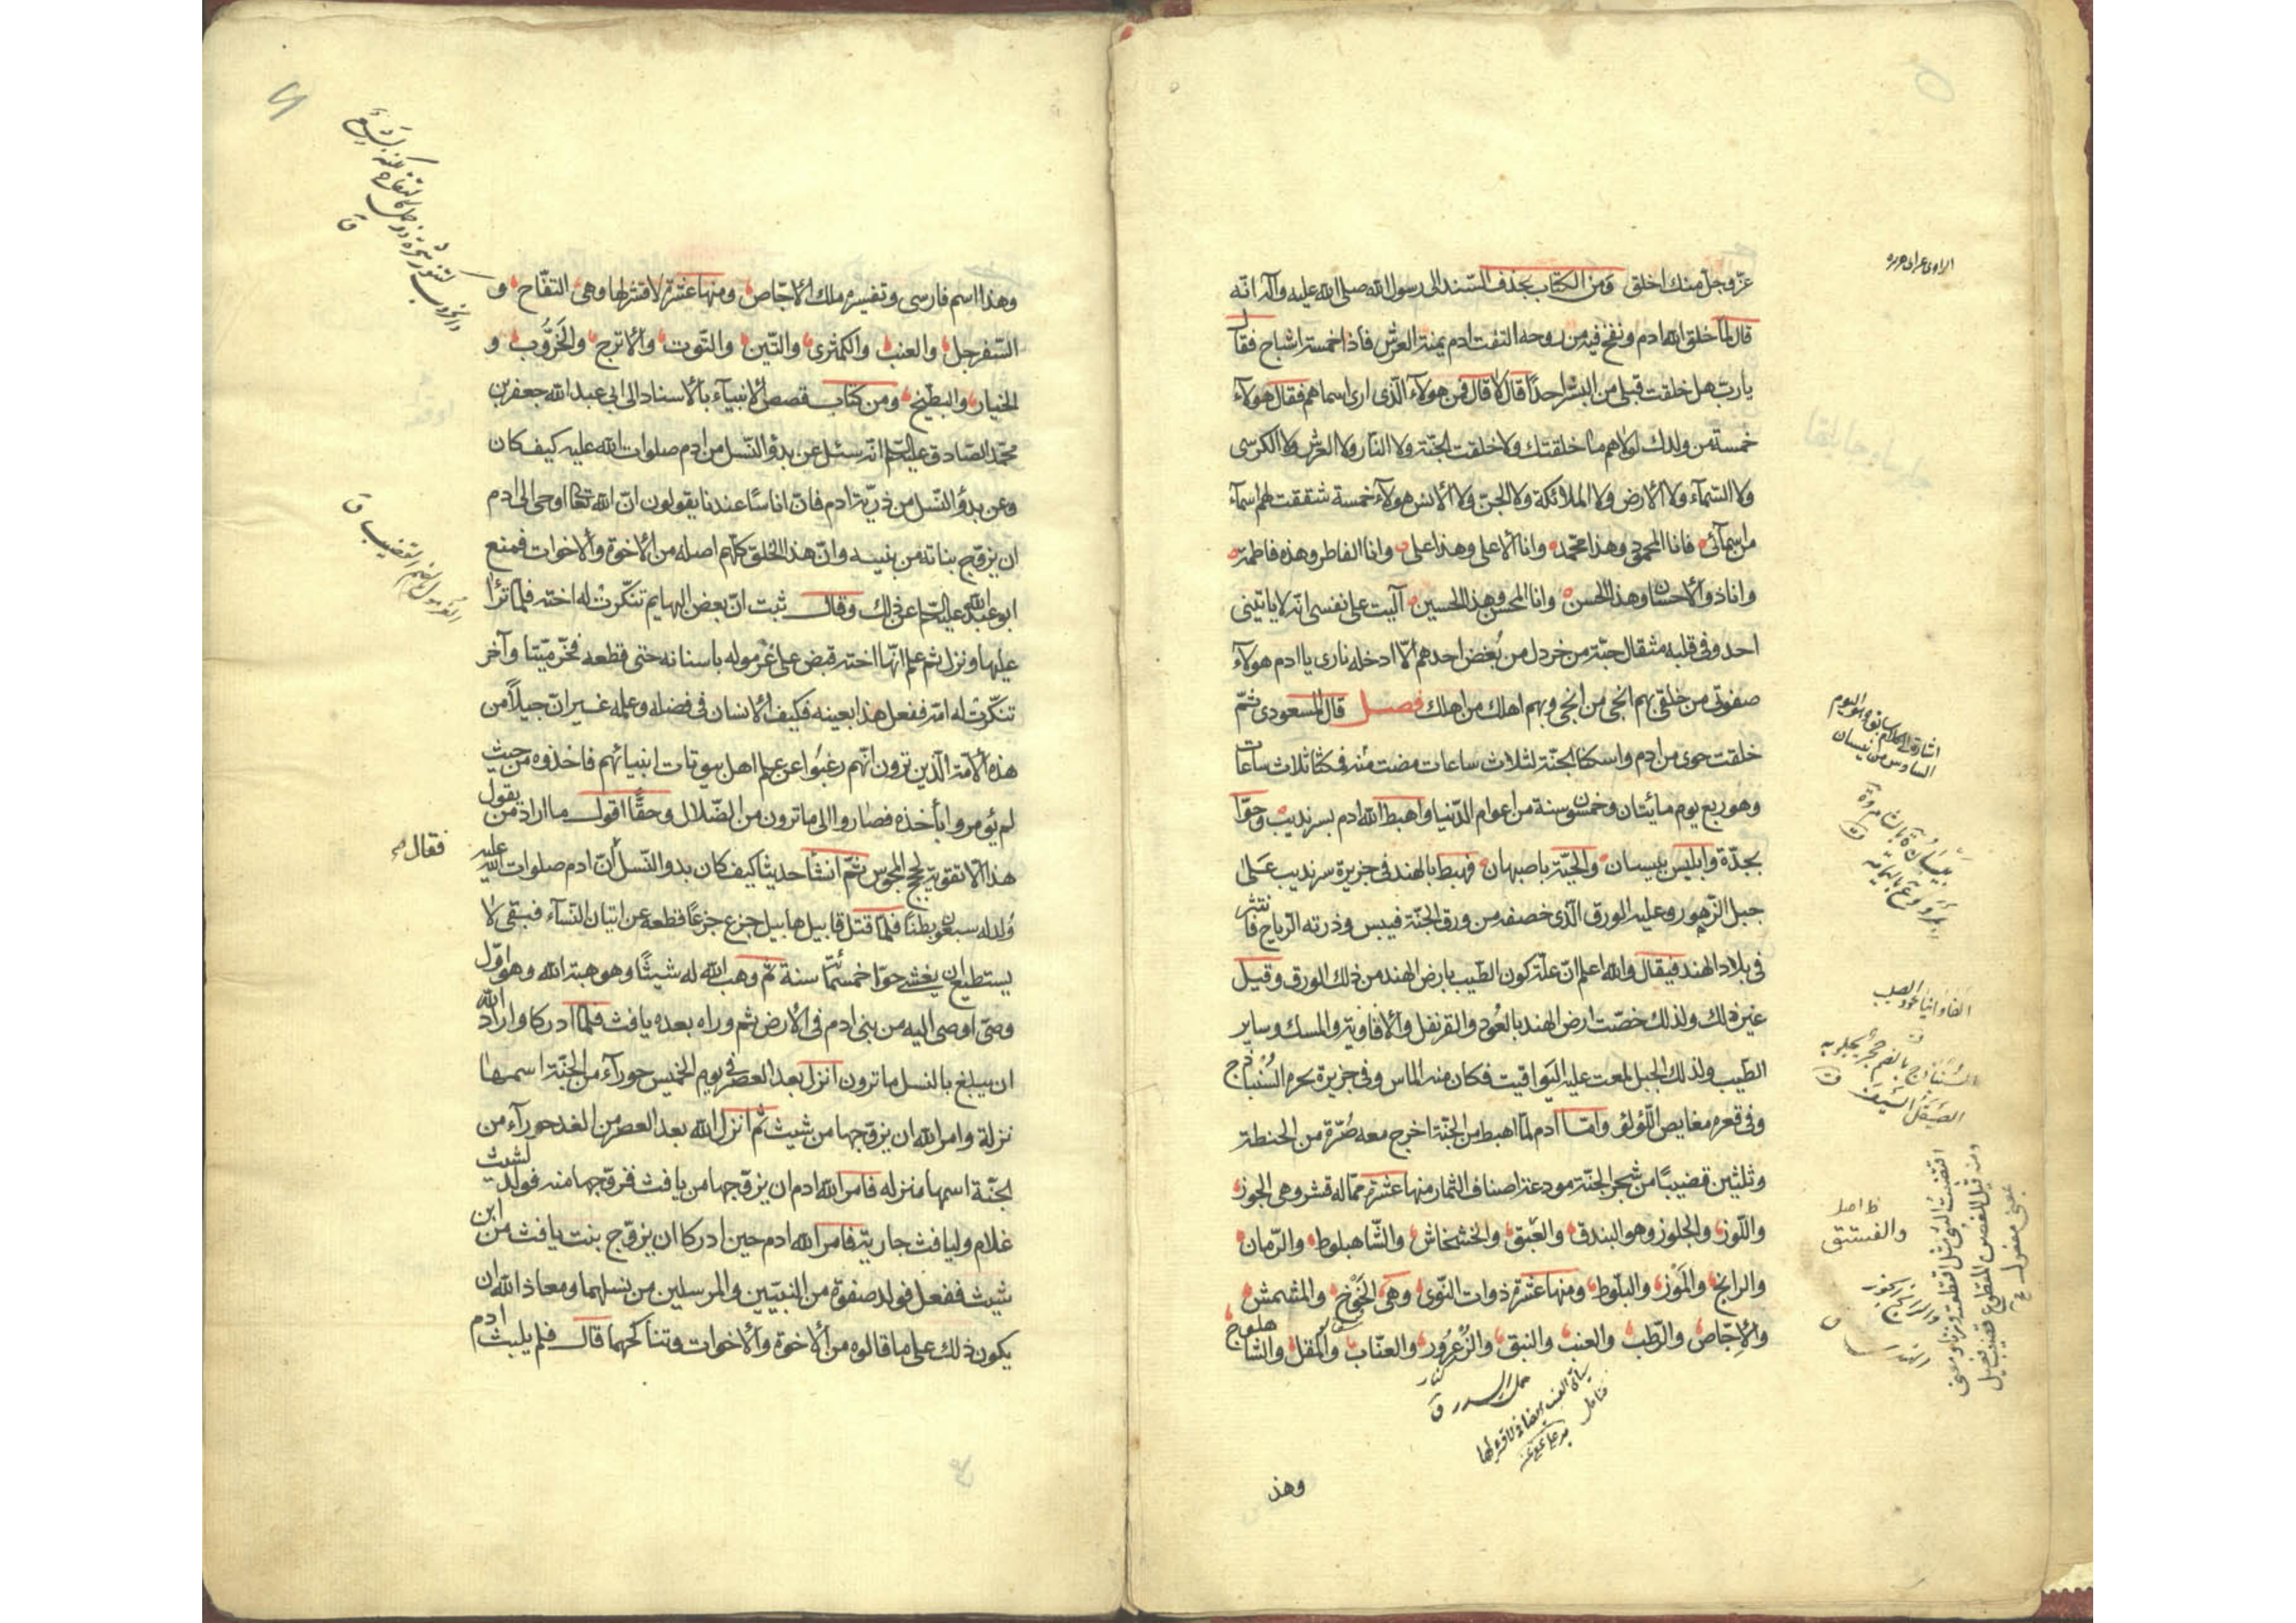 عزّ وجلّ منك اخلق ومن الكتاب بحذف السّند الى رسول الله صلى الله عليه وآله انّه
قال لما خلق الله ادم ونفخ فيه من روحه التفت ادم يمنة العرش فاذا خمسة اشباح فقال
يارب هل خلقت قبلي من البشر احدًا قال لا قال فمن هولآء الّذى ارى اسماهم فقال هولآء
خمسة من ولدك لولاهم ما خلقتك ولا خلقت الجنّة ولا النّار ولا العرش ولا الكرسى
ولا السّمآء ولا الأرض ولا الملائكة ولا الجنّ ولا الأنس هولآء خمسة شققت لهم اسمآء
من اسمآئى فانا المحمود وهذا محمّد وانا الأعلى وهذا على وانا الفاطر وهذه فاطمة
وانا ذو الأحسان وهذا الحسن وانا المحسن وهذا الحسين آليت على نفسى انّه لا ياتينى
احد وفى قلبه مثقال حبّة من خردل من بُغض احدهم الّا ادخله نارى يا ادم هولآء
صفوتى من خلقى بهم انجى من انجى وبهم اهلك من اهلك فصل قال المسعودى ثمّ
خلقت حوى من ادم واسكنا الجنّة لثلاث ساعات مضت منه فمكثا ثلاث ساعات
وهو ربع يوم مائتان وخمسون سنة من اعوام الدّنيا واهبط الله ادم بسرنديب وحوّا
بجدّة وابليس ببيسان والحيّة باصبهان فهبط بالهند فى جزيرة سرنديب على
جبل الرّهون وعليه الورق الّذى خصفه من ورق الجنّة فيبس وذرته الرّياح فانتثر
فى بلاد الهند فيقال والله اعلم انّ علّة كون الطّيب بارض الهند من ذلك الورق وقيل
غير ذلك ولذلك خصّت ارض الهند بالعُود والقرنفل والأفاوية والمسك وساير
الطّيب ولذلك الجبل لمعت عليه اليَواقيت فكان منه الماس وفى جزيرة بحره السُنباذج
وفى قعره مغايص اللّؤلؤ وامّا ادم لمّا اهبط من الجنّة اخرج معه صُرّة من الحنطة
وثلثين قضيبًا من شجر الجنّة مودعة اصناف الثمار منها عشرة ممّا له قشر وهى الجوز
واللّوز والجلوز وهو البندق والعبق والخشخاش والشّاهبلوط والرّمان
والرانج والمَوْز والبلّوط ومنها عشرة ذوات النّوى وهى الخَوْخ والمشمش
والإجّاص والرّطب والعنب والنبق والزُعرُور والعنّاب والمقل والشّاهلوج
وهذ
والفستق
وهذا اسم فارسى وتفسيره ملك الأجّاص ومنها عشرة لا قشر لها وهى التفّاح و
السّفرجل والعنب والكمثرى والتّين والتّوت والأترج والخَرُّوب و
الخيار والبطّيخ ومن كتاب قصص الأنبيآء بالأسناد الى ابى عبد الله جعفر بن
محمّد الصّادق عليه السّلم انّه سئل عن بدؤ النّسل من ادم صلوات الله عليه كيف كان
وعن بدؤ النّسل من ذريّة ادم فانّ اناسًا عندنا يقولون انّ الله تعالى اوحى الى ادم
ان يزوّج بناته من بنيه وانّ هذا الخلق كلّهم اصله من الأخوة والأخوات فمنع
ابو عبد الله عليه السّلم عن ذلك وقال ثبت انّ بعض البهايم تنكّرت له اخته فلمّا نزا
عليها ونزل ثم علم انّها اخته قبض على غرموله باسنانه حتى قطعه فخرّ ميّتا وآخر
تنكّرت له امّه ففعل هذا بعينه فكيف الأنسان فى فضله وعلمه غير انّ جيلاً من
هذه الأمّة الّذين ترون انّهم رغبُوا عن علم اهل بيوتات انبيائهم فاخذوه من حيث
لم يؤمروا بأخذه فصاروا الى ما ترون من الضّلال وحقًّا اقول ما اراد من يقول
هذا الّا تقوية لحجج المجوس ثمّ انشأ حديثا كيف كان بدو النّسل انّ ادم صلوات الله عليه
فقال
وُلد له سبعون بطنًا فلمّا قتل قابيل هابيل جزع جزعًا قطعه عن اتيان النّسآء فبقى لا
يستطيع ان يغشى حوّا خمسمأئة سنة ثم وهب الله له شيثًا وهو هبة الله وهو اوّل
وصىّ اوصى اليه من بنى ادم فى الأرض ثم وراه بعده يافث فلمّا ادركا واراد الله
ان يبلغ بالنسل ما ترون انزل بعد العصر فى يوم الخميس حورآء من الجنّة اسمها
نزلة وامر الله ان يزوّجها من شيث ثم انزل الله بعد العصر من الغد حورآء من
الجنّة اسمها منزله فامر الله ادم ان يزوّجها من يافث فزوّجها منه فولد لشيث
غلام وليافث جارية فامر الله ادم حين ادركا ان يزوّج بنت يافث من ابن
شيث ففعل فولد صفوة من النبيّين والمرسلين من نسلهما ومعاذ الله ان
يكون ذلك على ما قالوه من الأخوة والأخوات وتناكحهما قال فلم يلبث ادم